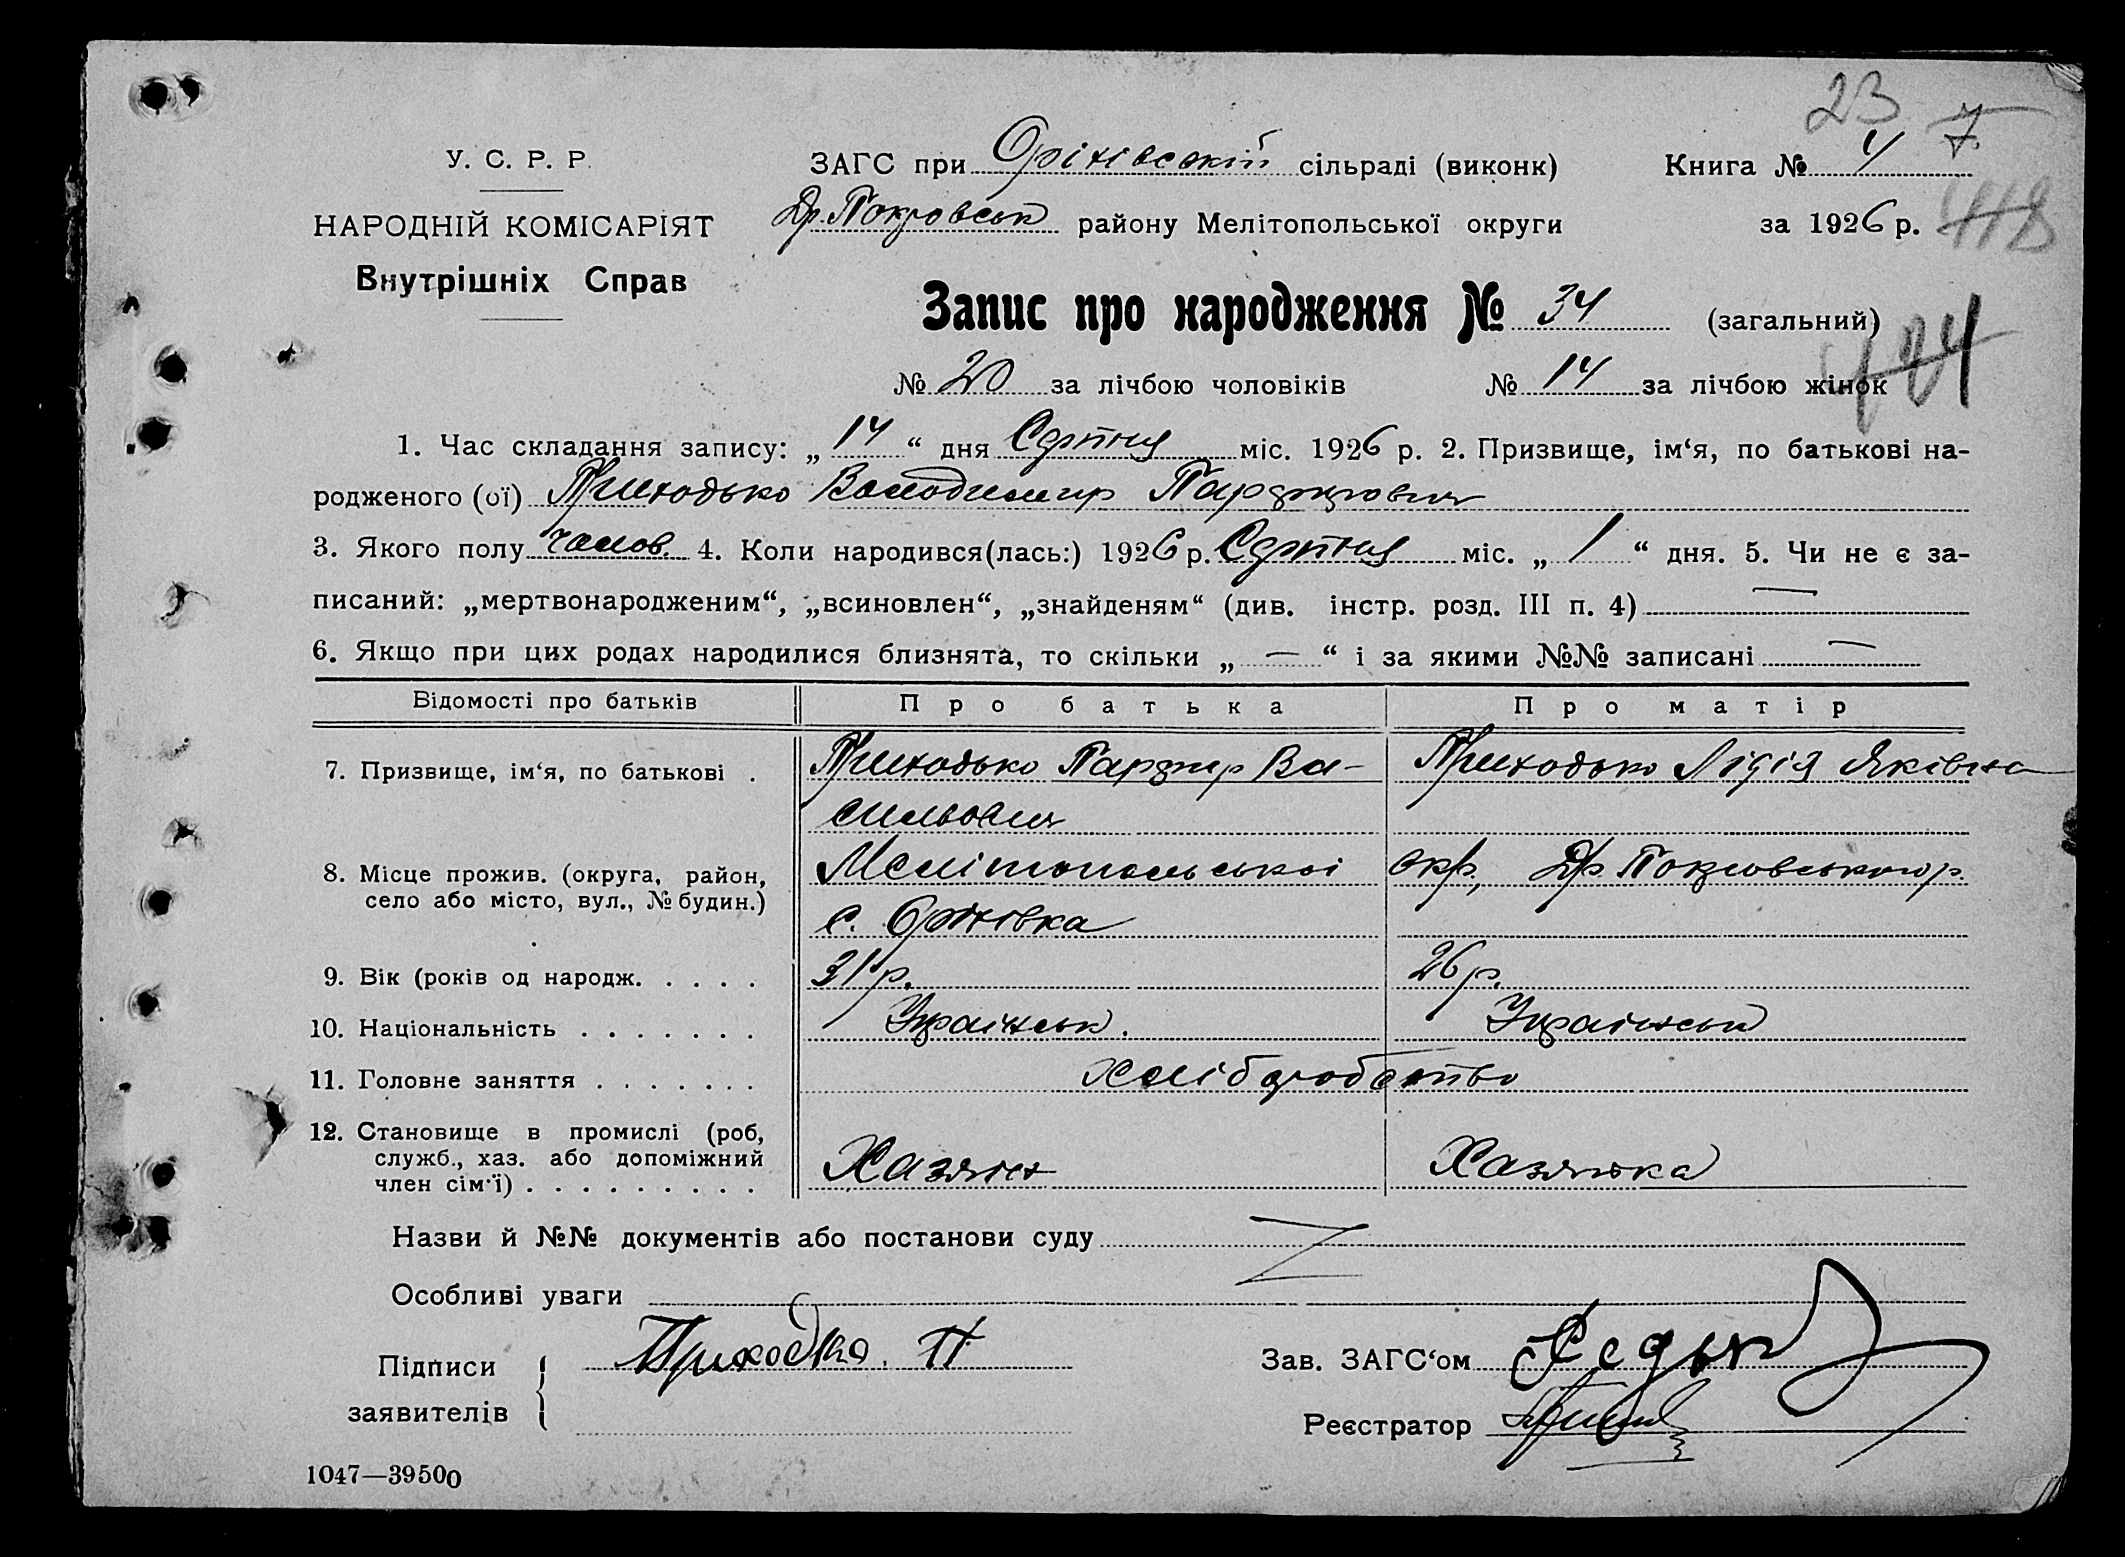 23
7
У. С. Р. Р.
ЗАГС при Оріхівській сільраді (виконк)
Книга № 4
НАРОДНІЙ КОМІСАРІЯТ
Др. Покровськ району Мелітопольської округи
за 1926 р.
118
Внутрішніх Справ
Запис про народження № 34 (загальний)
№ 20 за лічбою чоловіків № 14 за лічбою жінок
1. Час складання запису: „ 14 “ дня Серпня міс. 1926 р. 2. Призвище, ім‘я, по батькові на-
родженого (ої) Приходько Володимир
3. Якого полу чолов. 4. Коли народився(лась:) 1926 р. Серпня міс. „ 1 “ дня. 5. Чи не є за-
писаний: „мертвонародженим“, „всиновлен“, „знайденям“ (див. інстр. розд. III п. 4) —
6. Якщо при цих родах народилися близнята, то скільки „ — “ і за якими №№ записані —
Відомості про батьків Про батька Про матір
7. Призвище, ім‘я, по батькові . Приходько Ва- Приходько Лідія Яківна
сильович
8. Місце прожив. (округа, район, Мелітопольської окр., Др. Покровського р.
село або місто, вул., № будин.)
с. Оріхівка
9. Вік (років од народж. . . . . 31 р. 26 р.
10. Національність . . . . . . . Українськ. Українськ
11. Головне заняття . . . . . . . Хліборобство
12. Становище в промислі (роб,
служб., хаз. або допоміжний Хазяїн Хазяйка
член сім‘ї) . . . . . . . . .
Назви й №№ документів або постанови суду
Особливі уваги
Підписи Приходько. П
заявителів
Зав. ЗАГС‘ом
Реєстратор
1047—39500